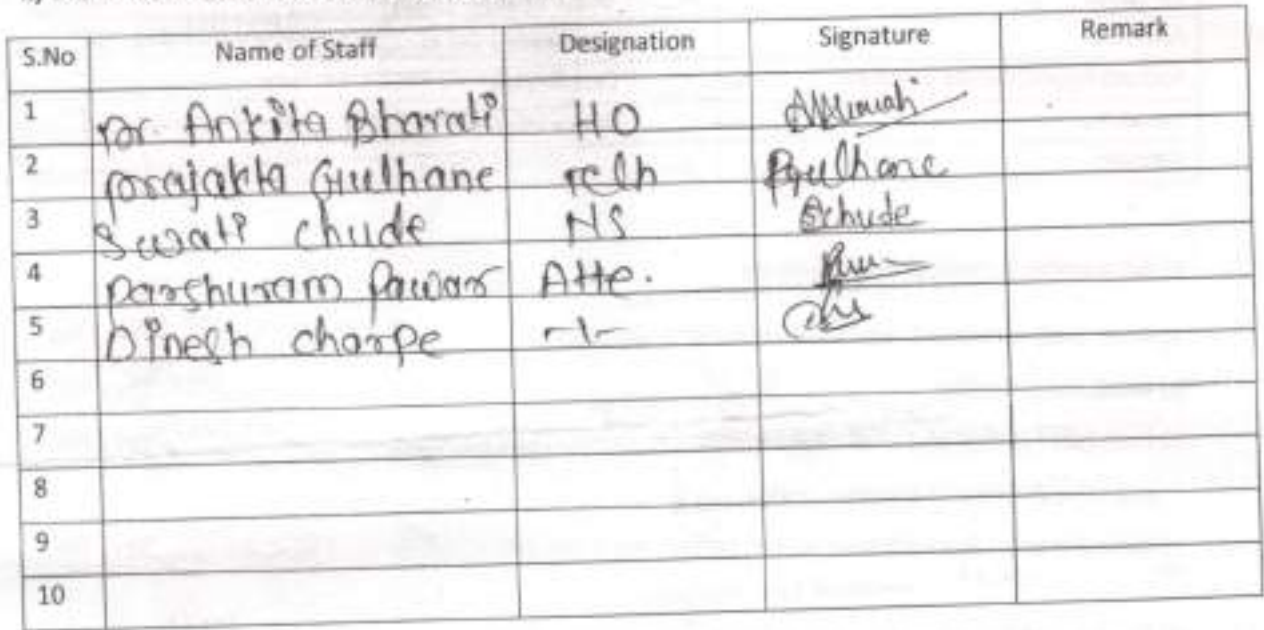 S.No Name of Staff Designation Signature Remark
1 Dr. Ankita Bharati HO
2 Prajakta Gulhane Tech PGulhane
3 Swati chude NS Schude
4 Parshuram Pawar Atte.
5 Dinesh charpe -1-
6
7
8
9
10